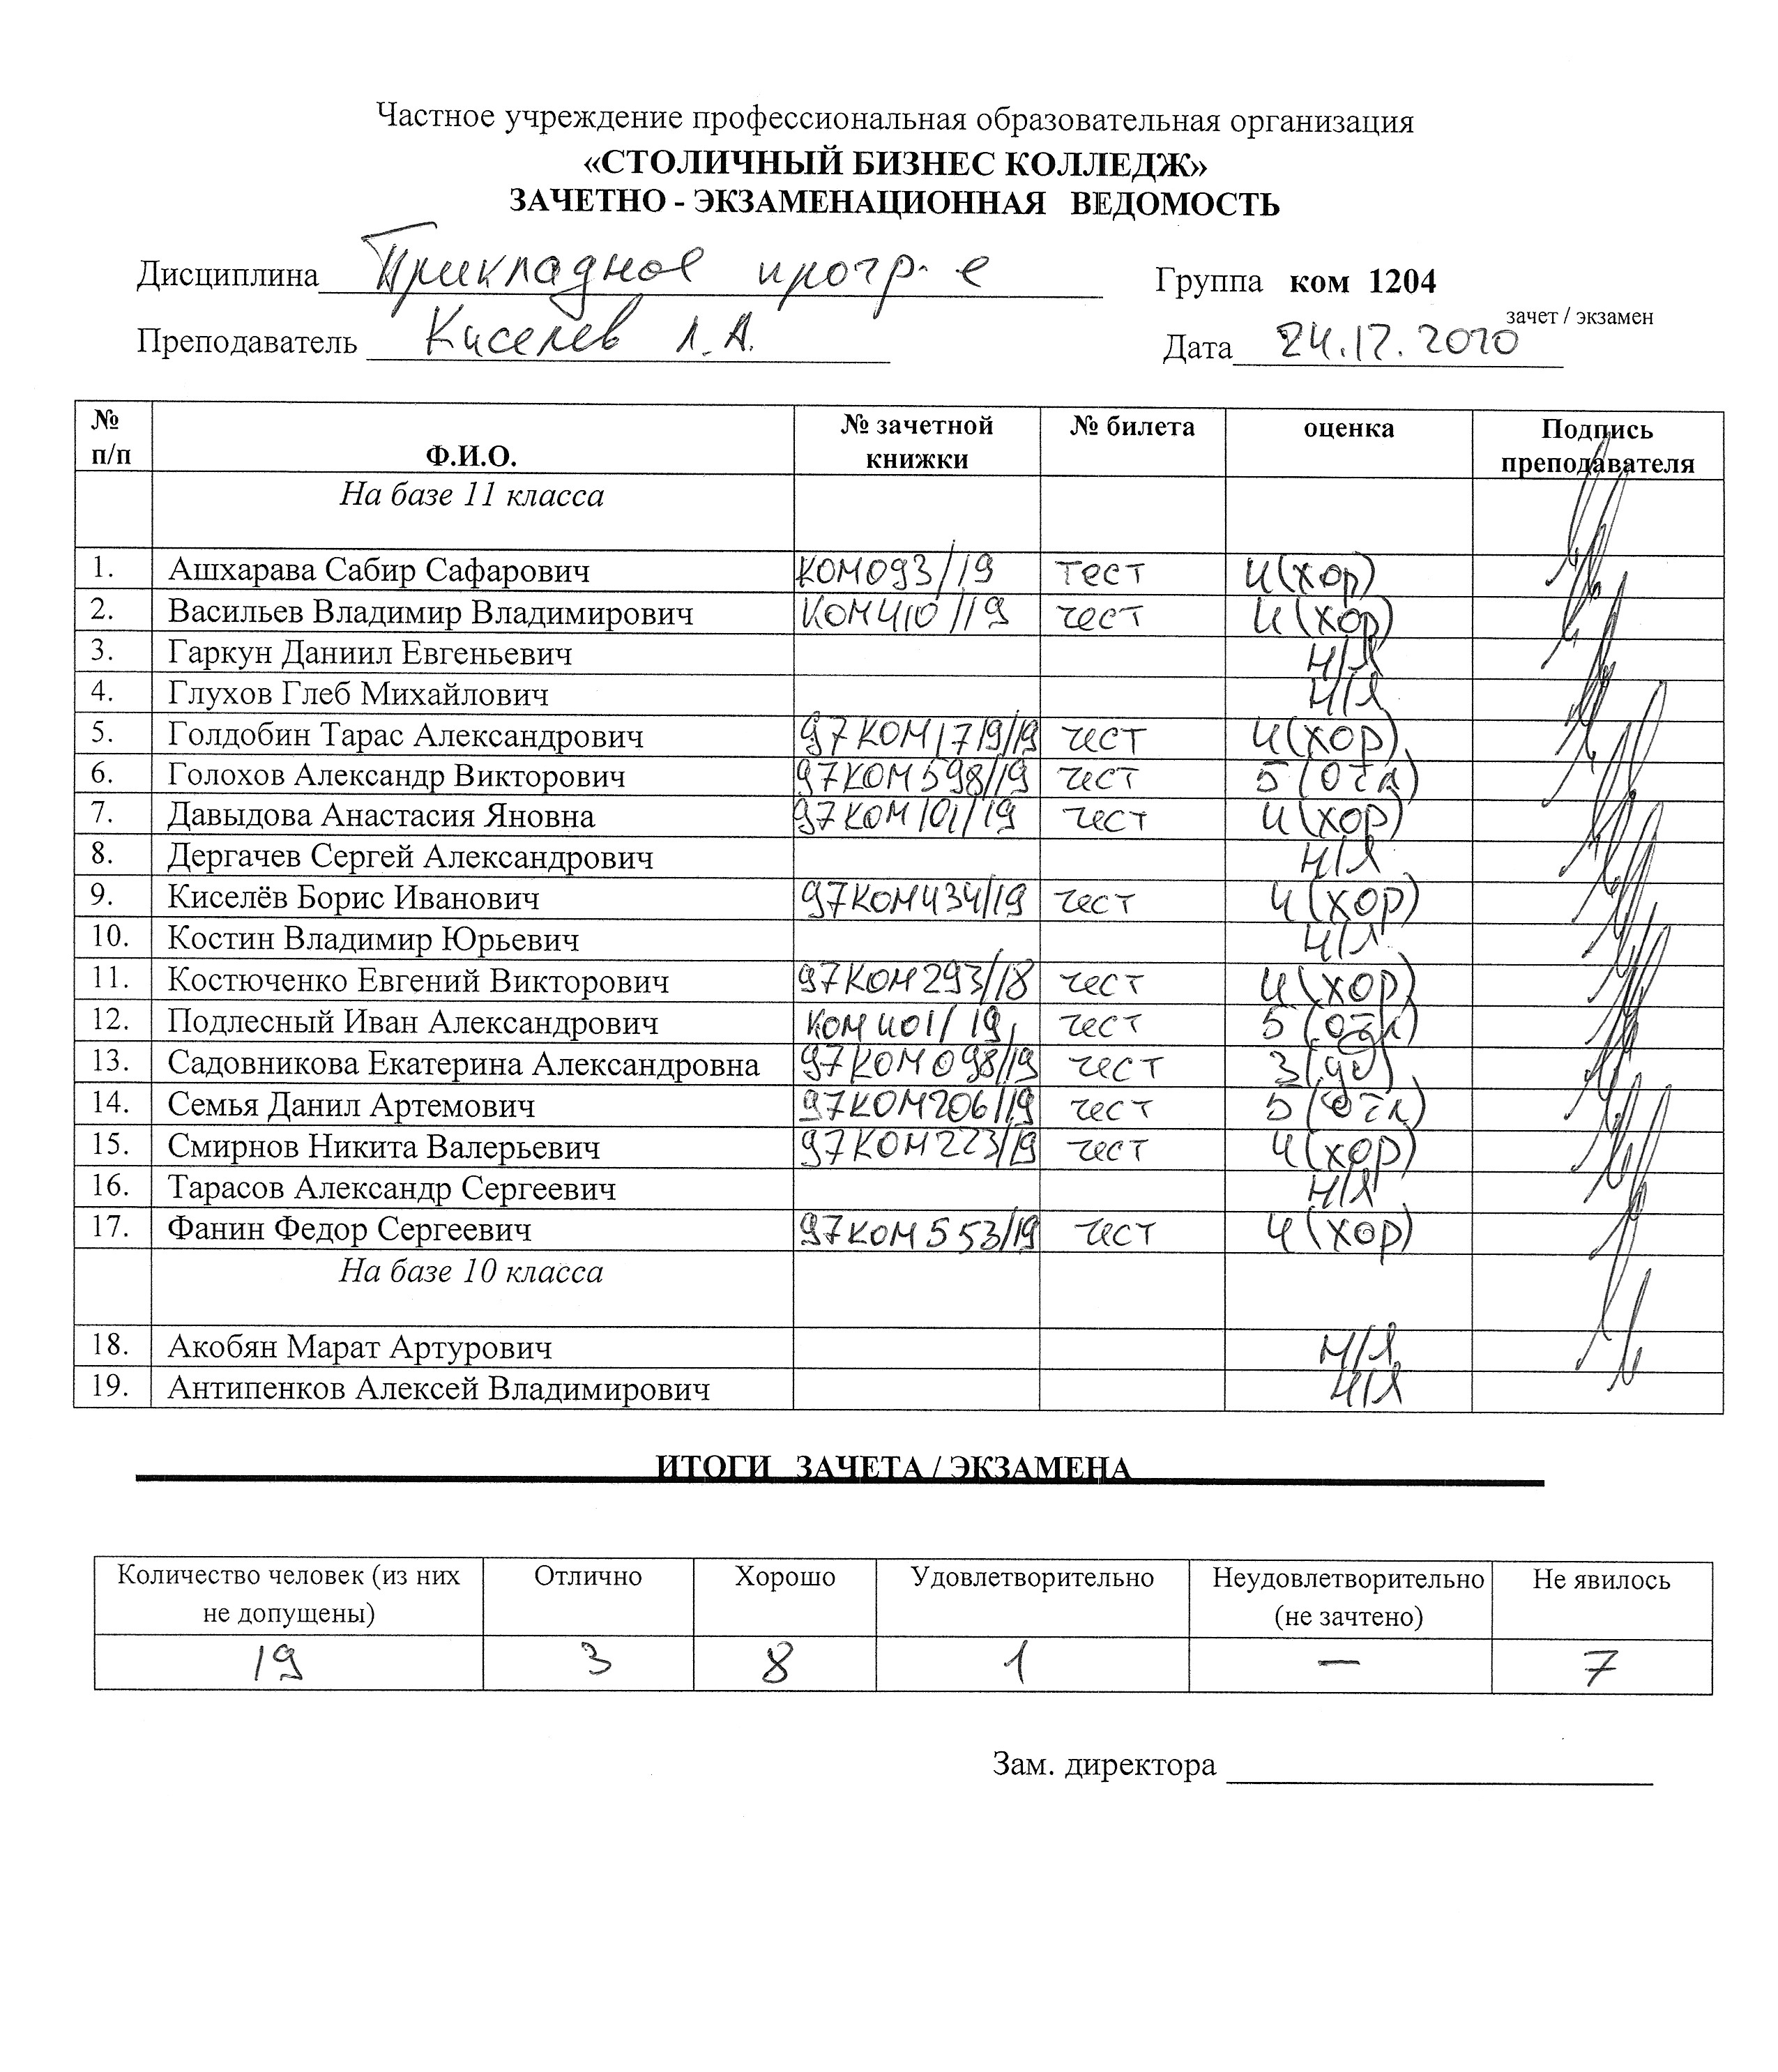 Частное учреждение профессиональная образовательная организация
«СТОЛИЧНЫЙ БИЗНЕС КОЛЛЕДЖ»
ЗАЧЕТНО - ЭКЗАМЕНАЦИОННАЯ ВЕДОМОСТЬ
Дисциплина Прикладное прогр-е Группа ком 1204
зачет / экзамен
Преподаватель Киселев Л.А. Дата 24.12.2020
№ п/п Ф.И.О. № зачетной книжки № билета оценка Подпись преподавателя
На базе 11 класса
1. Ашхарава Сабир Сафарович КОМ093/19 тест 4(хор)
2. Васильев Владимир Владимирович КОМ410/19 тест 4(хор)
3. Гаркун Даниил Евгеньевич н/я
4. Глухов Глеб Михайлович н/я
5. Голдобин Тарас Александрович 97КОМ1719/19 тест 4(хор)
6. Голохов Александр Викторович 97КОМ598/19 тест 5(отл)
7. Давыдова Анастасия Яновна 97КОМ101/19 тест 4(хор)
8. Дергачев Сергей Александрович н/я
9. Киселёв Борис Иванович 97КОМ434/19 тест 4(хор)
10. Костин Владимир Юрьевич н/я
11. Костюченко Евгений Викторович 97КОМ293/18 тест 4(хор)
12. Подлесный Иван Александрович КОМ401/19 тест 5(отл)
13. Садовникова Екатерина Александровна 97КОМ098/19 тест 3(уд)
14. Семья Данил Артемович 97КОМ206/19 тест 5(отл)
15. Смирнов Никита Валерьевич 97КОМ223/19 тест 4(хор)
16. Тарасов Александр Сергеевич н/я
17. Фанин Федор Сергеевич 97КОМ553/19 тест 4(хор)
На базе 10 класса
18. Акобян Марат Артурович н/я
19. Антипенков Алексей Владимирович н/я
ИТОГИ ЗАЧЕТА / ЭКЗАМЕНА
Количество человек (из них не допущены) Отлично Хорошо Удовлетворительно Неудовлетворительно (не зачтено) Не явилось
19 3 8 1 — 7
Зам. директора